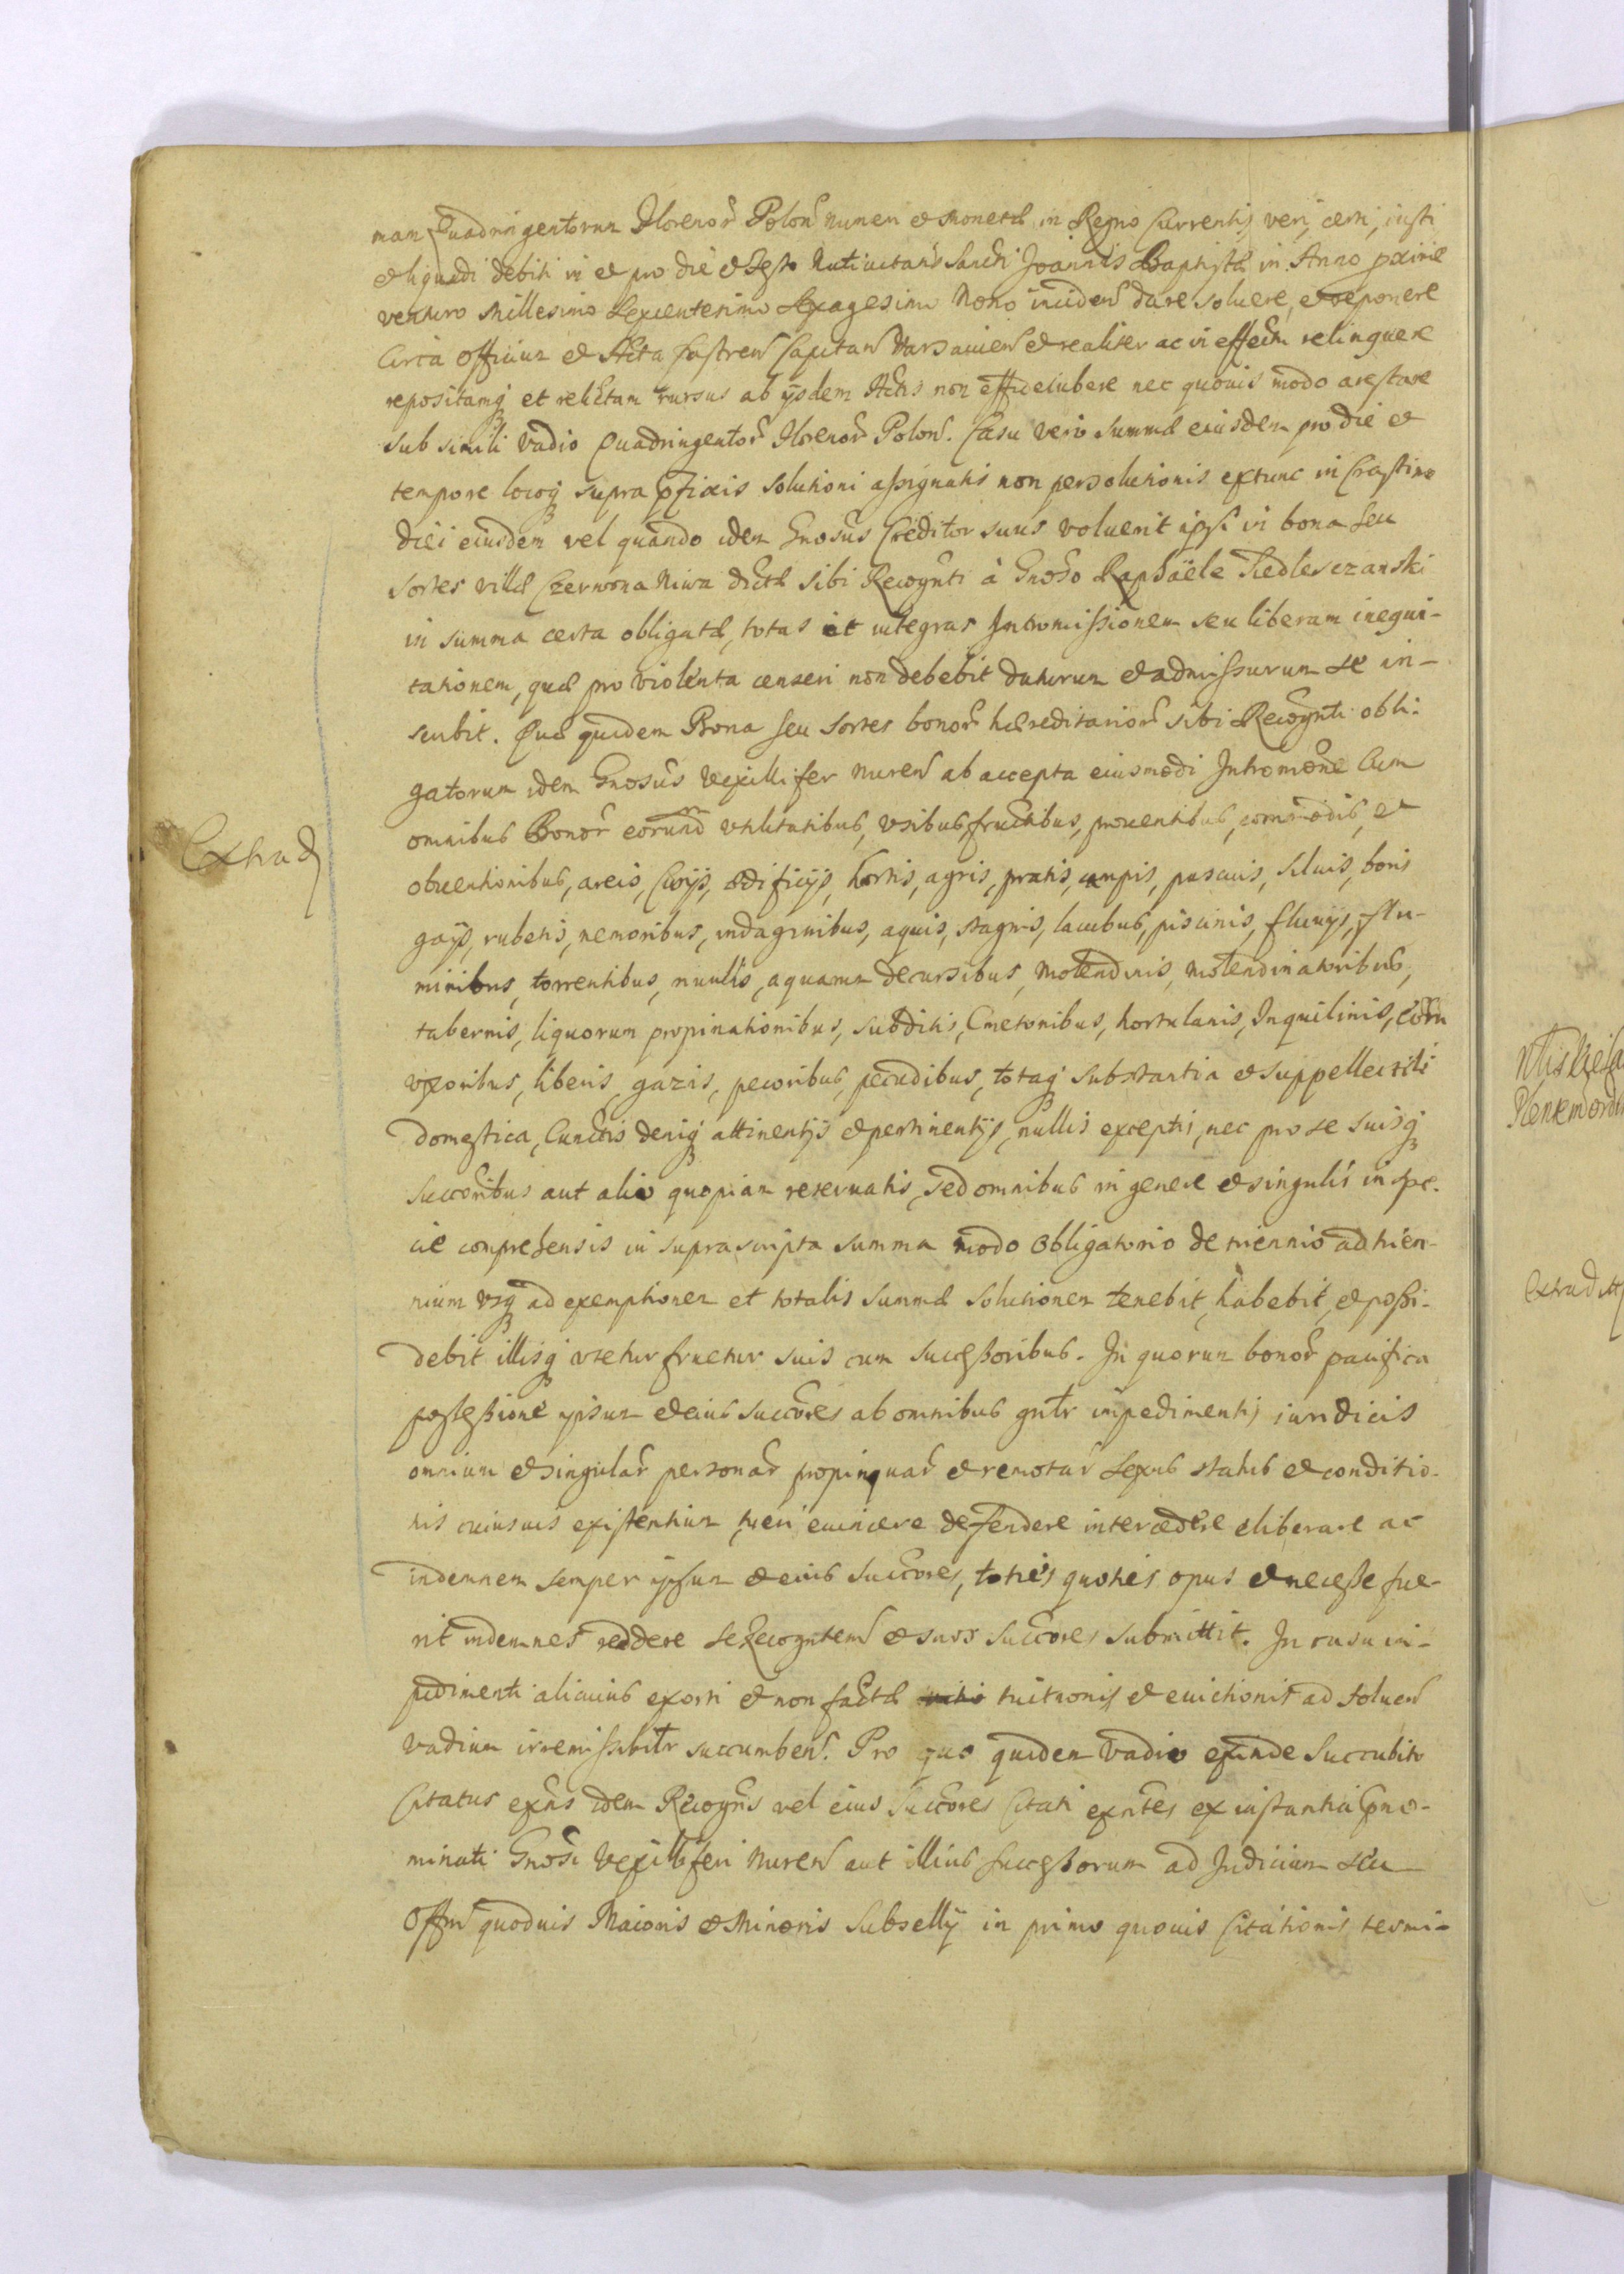 mam Quadringentorum Florenor Polon numeri et monetæ in Regno Currentis veri, certi, iusti
et liquidi debiti in et pro die et Festo Natiuitatis Sancti Joannis Baptistæ in Anno pxime
venturo Millesimo Sexcentesimo Sexagesimo Nono inciden dare soluere, et reponere
Circa Officium et Acta Castren Capitan Varsauien et realiter ac in effectu relinquere
repositamq et relictam rursus ab ijsdem Actis non efficeiubere nec quouis modo arestare
sub simili vadio Quadringentor Florenor Polon. Casu vero summæ eiusdem pro die et
tempore locoq supra pfixis solutioni assignatis non persolutionis extunc in Crastino
diei eiusdem vel quando idem Gnosus Creditor suus voluerit ipsi in bona seu
sortes villæ Czerwona Niwa dictæ sibi Recognti à Gnoso Raphaële Siedlesczanski
in summa certa obligatæ, totas et integras Intromissionem seu liberam inequi-
tationem, quæ pro violenta censeri non debebit daturum et admissurum se in-
scribit. Quæ quidem Bona seu Sortes bonor hæreditarior sibi Recognti obli-
gatorum idem Gnosus Vexillifer Nuren ab accepta eiusmodi Intromone Cum
omnibus Bonor eorund vtilitatibus, vsibus fructibus, prouentibus, commodis, et
obuentionibus, areis, Curijs, ædificijs, hortis, agris, pratis, campis, pascuis, siluis, boris
gaijs, rubetis, nemoribus, indaginibus, aquis, stagnis, lacubus, piscinis, fluuijs, flu-
minibus, torrentibus, riuulis, aquarum decursibus, Molendinis, Molendinatoribus,
tabernis, liquorum propinationibus, subditis, Cmetonibus, hortulanis, Inquilinis, eoru
vxoribus, liberis, gazis, pecoribus, pecudibus, totaq substantia et suppellectili
domestica, Cunctis deniq attinentijs et pertinentijs, nullis exceptis, nec pro se suisq
succoribus aut alio quopiam reseruatis, sed omnibus in genere et singulis in spe-
cie comprehensis in suprascripta summa modo Obligatorio de triennio ad trien-
nium vsq ad exemptionem et totalis summæ solutionem tenebit, habebit, et possi-
debit illisq vtetur fruetur suis cum successoribus. In quorum bonor pacifica
possessione ipsum et eius succores ab omnibus gntr impedimentis iuridicis
omnium et singular personar propinquar et remotar sexus status et conditio-
nis cuiusuis existentium tueri euincere defendere intercedere eliberare ac
indemnem semper ipsum et eius succores, toties quoties opus et necesse fue-
rit indemnes reddere se Recognten et suos succores submittit. In casu im-
pedimenti alicuius exorti et non factæ tuitionis et euictionis ad soluen
vadium irremissibiltr succumben. Pro quo quidem Vadio exinde Succubito
Citatus exns idem Recogns vel eius Succores Citati exntes ex instantia Pno-
minati Gnosi Vexilliferi Nuren aut illius successorum ad Judicium seu
Offm quoduis Maioris et Minoris Subsellij in primo quouis Citationis termi-
Extrad
Extradit